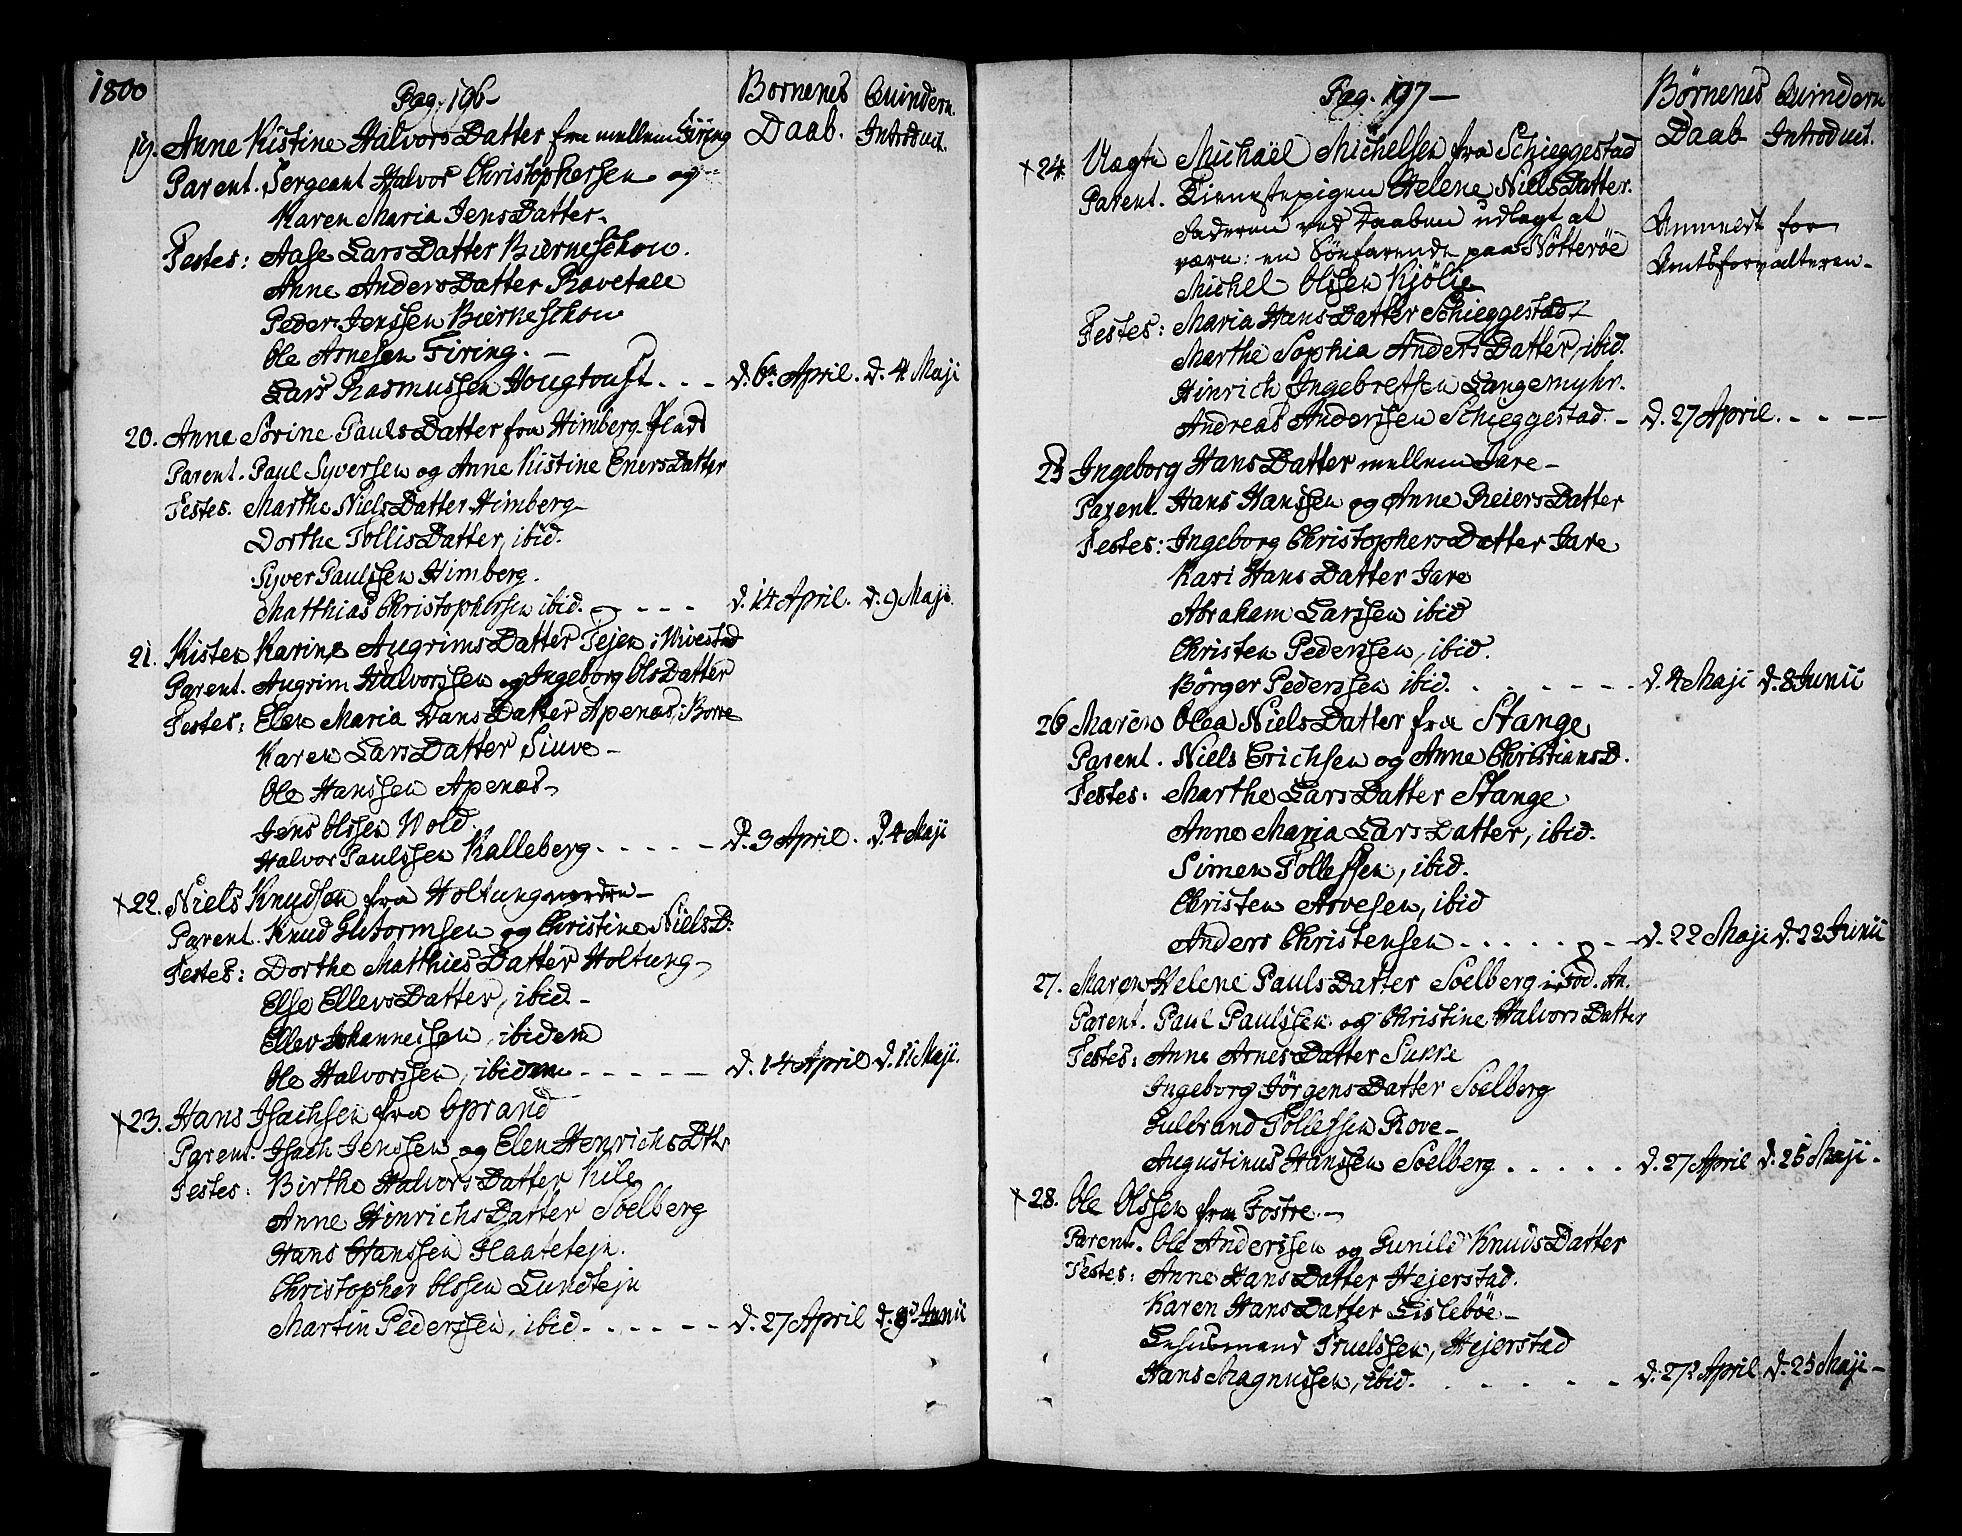 1800
Pag. 196-
Börnenes Daab.
Quindern. Introduct.
19. Anne Kistine HalvorsDatter fra mellem Firing
Parent. Sergeant Halvor Christophersen og
Karen Maria JensDatter.
Testes: Aase LarsDatter Bierneschou.
Anne AndersDatter Ravetale
Peder Jenssen Bierneschou
Ole Arnesen Firing. —
Lars Rasmussen Hougtoust . . - d. 6te April. d. 4 Maji
20. Anne Sorine PaulsDatter fra Himberg-Plads
Parent. Paul Syversen og Anne Kistine EnersDatter
Testes. Marthe NielsDatter Himberg-
Dorthe TollisDatter, ibid.
Syver Paulssen Himberg.
Matthias Christophersen ibid. - - - - d. 14 April. d. 9 Maji.
21. Kisten Karine AugrimsDatter Tejen i Wivestad
Parent. Augrim Halvorssen og Ingeborg OlsDatter
Testes: Elen Maria HansDatter Apenæs, i Borre
Karen LarsDatter Siuve -
Ole Hanssen Apenæs-
Jens Olssen Wold
Halvor Paulssen Kalleberg - - - - - d. 3 April. d. 4 Maji
+22. Niels Knudsen fra Holtung nordre-
Parent. Knud Guttormsen og Christine NielsD:
Testes: Dorthe MatthiesDatter Holtung-
Else EllevsDatter, ibid. -
Ellev Johannessen, ibidem
Ole Halvorssen, ibidem - - - - - d. 14 April d. 11 Maji.
+23. Hans Isachsen fra Oprand
Parent. Isach Jenssen og Elen HenrichsDtr
Testes: Birthe HalvorsDatter Kile
Anne HinrichsDatter Soelberg
Hans Hanssen Flaatetejn.
Christopher Olssen Lundtejn
Martin Pederssen, ibid. - - - - - d. 27 April d. 8de Junii
Pag. 197 —
Börnenes Daab
Quindern Introduct.
+24. Uægte Michaël Michelsen fra Schieggestad
Parent. Tienestepigen Helene NielsDatter.
Faderen ved Daaben udlagt at
være: en Söefarende paa Nötteröe
Michel Olssen Kjölie
Anmeldt for
Amtsforvalteren.
Testes: Maria HansDatter Schieggestad
Marthe Sophia AndersDatter, ibid.
Hinrich Ingebretsen Langemyhr.
Andreas Anderssen Schieggestad. - d. 27 April. - - - -
25 Ingeborg HansDatter mellem Jare -
Parent. Hans Hanssen og Anne ReiersDatter
Testes: Ingeborg ChristophersDatter Jare
Kari HansDatter Jare
Abraham Larssen ibid
Christen Pederssen, ibid.
Börger Pederssen ibid. - - - - - - d. 4 Maji d. 8 Junii
26 Maren Olea NielsDatter fra Stange
Parent. Niels Erichsen og Anne ChristiansD.
Testes: Marthe LarsDatter Stange
Anne Maria LarsDatter, ibid.
Simen Tollefsen, ibid.
Christen Arvesen, ibid
Anders Christensen . . . . . . - d. 22 Maji d. 22 Junii
27. Maren Helene PaulsDatter Soelberg i Sod. An.
Parent. Paul Paulssen og Christine HalvorsDatter
Testes: Anne ArnesDatter Sukke
Ingeborg JörgensDatter Soelberg
Gulbrand Tollefssen Rove -
Augustinus Hanssen Soelberg . . . . . d. 27 April d. 25 Maji.
+28. Ole Olssen fra Fostre. -
Parent. Ole Anderssen og Gunild KnudsDatter
Testes: Anne HansDatter Hejerstad.
Karen HansDatter Lisleböe -
Truelssen, Hejerstad
Hans Magnussen, ibid. - - - - - d. 27 April d. 25 Maji -